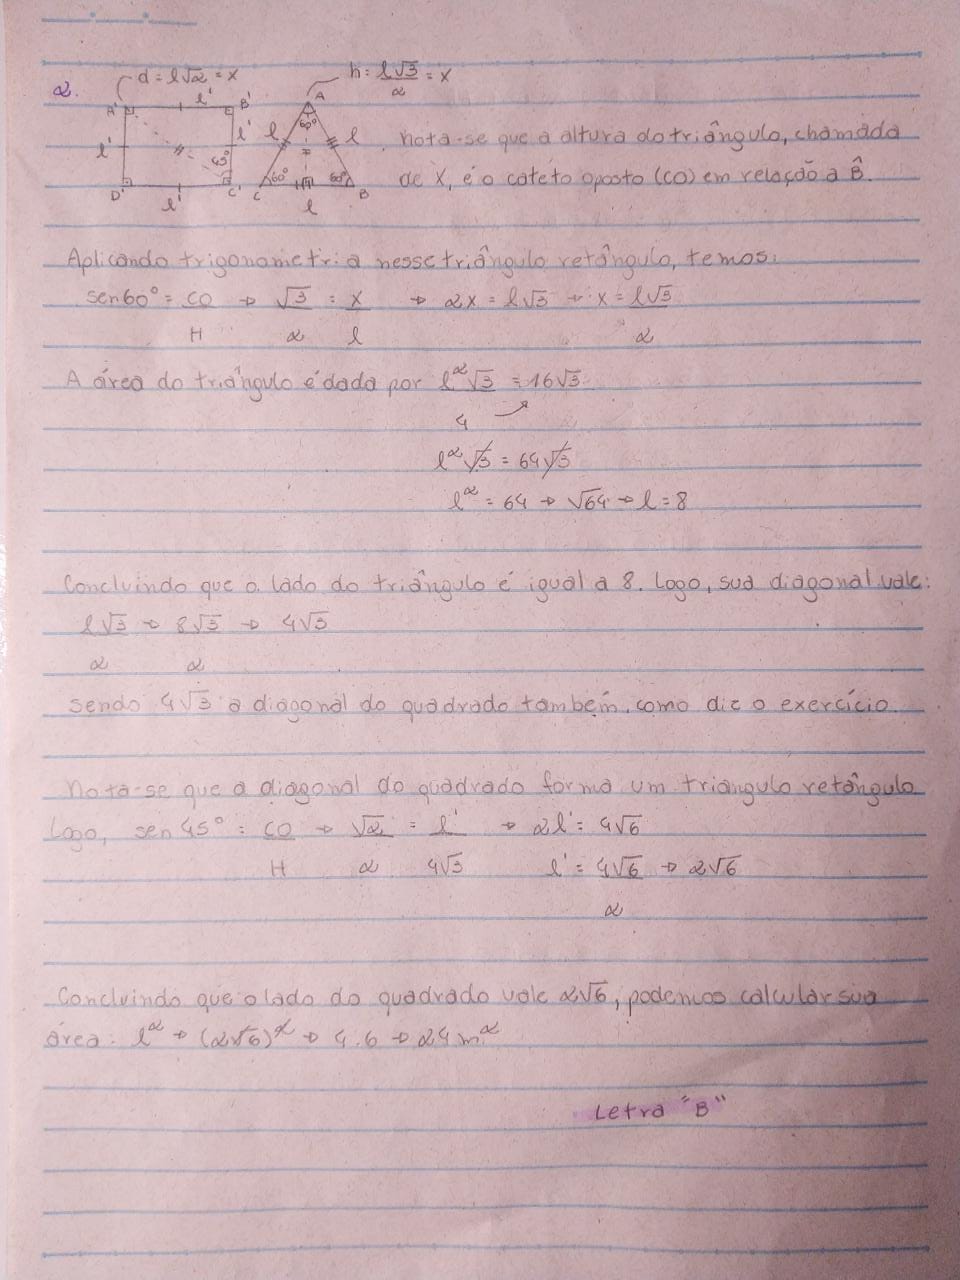 d = l√2 = x
h = l√3/2 = x
2.
A' l' B' l' l' 45° D' l' C'
A 60° l l 60° 60° C l B
Nota-se que a altura do triângulo, chamada
de X, é o cateto oposto (CO) em relação a B̂.
Aplicando trigonometria nesse triângulo retângulo, temos:
sen60° = CO/H → √3/2 = x/l → 2x = l√3 → x = l√3/2
A área do triângulo é dada por l²√3/4 = 16√3
l²√3 = 64√3
l² = 64 → √64 → l = 8
Concluindo que o lado do triângulo é igual a 8. Logo, sua diagonal vale:
l√3/2 → 8√3/2 → 4√3
sendo 4√3 a diagonal do quadrado também, como diz o exercício.
Nota-se que a diagonal do quadrado forma um triangulo retângulo
Logo, sen45° = CO/H → √2/2 = l'/4√3 → 2l' = 4√6
l' = 4√6/2 → 2√6
Concluindo que o lado do quadrado vale 2√6, podemos calcular sua
área: l² → (2√6)² → 4.6 → 24m²
Letra "B"